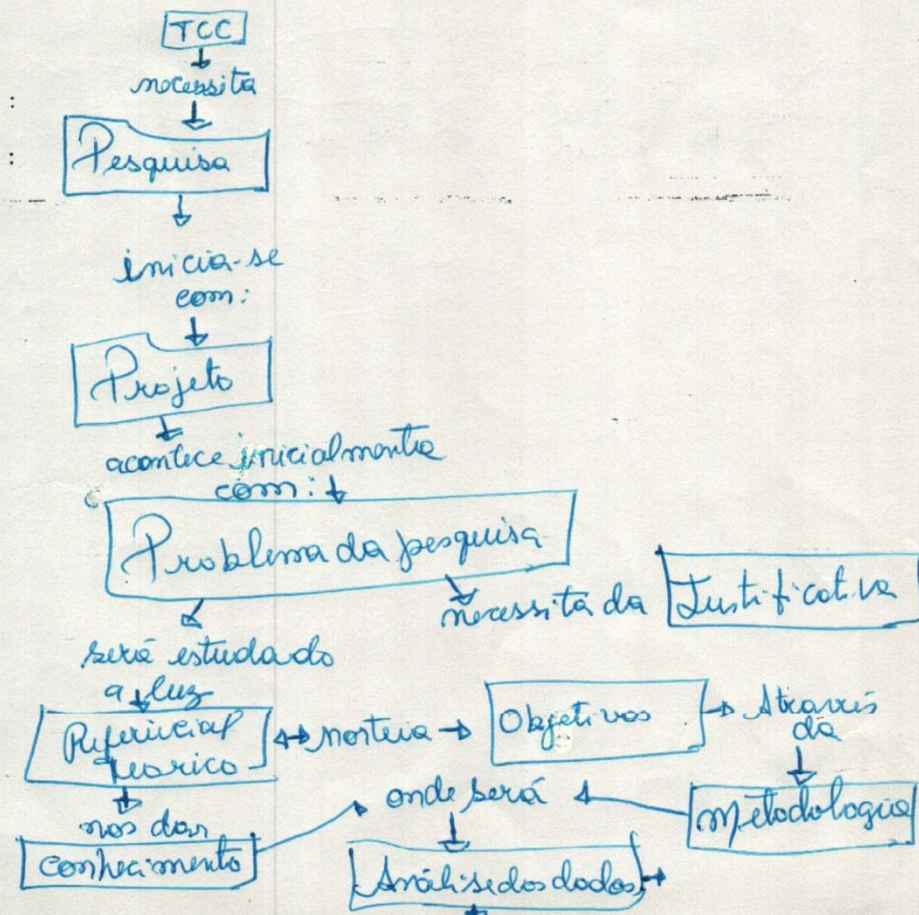 TCC
necessita
:
Pesquisa
:
inicia-se
com:
Projeto
acontece inicialmente
com:
Problema da pesquisa
necessita da Justificativa
será estudado
a luz
Referencial
teorico
norteia
Objetivos
Através
da
nos dar
conhecimento
onde será
metodologia
Análise dos dados